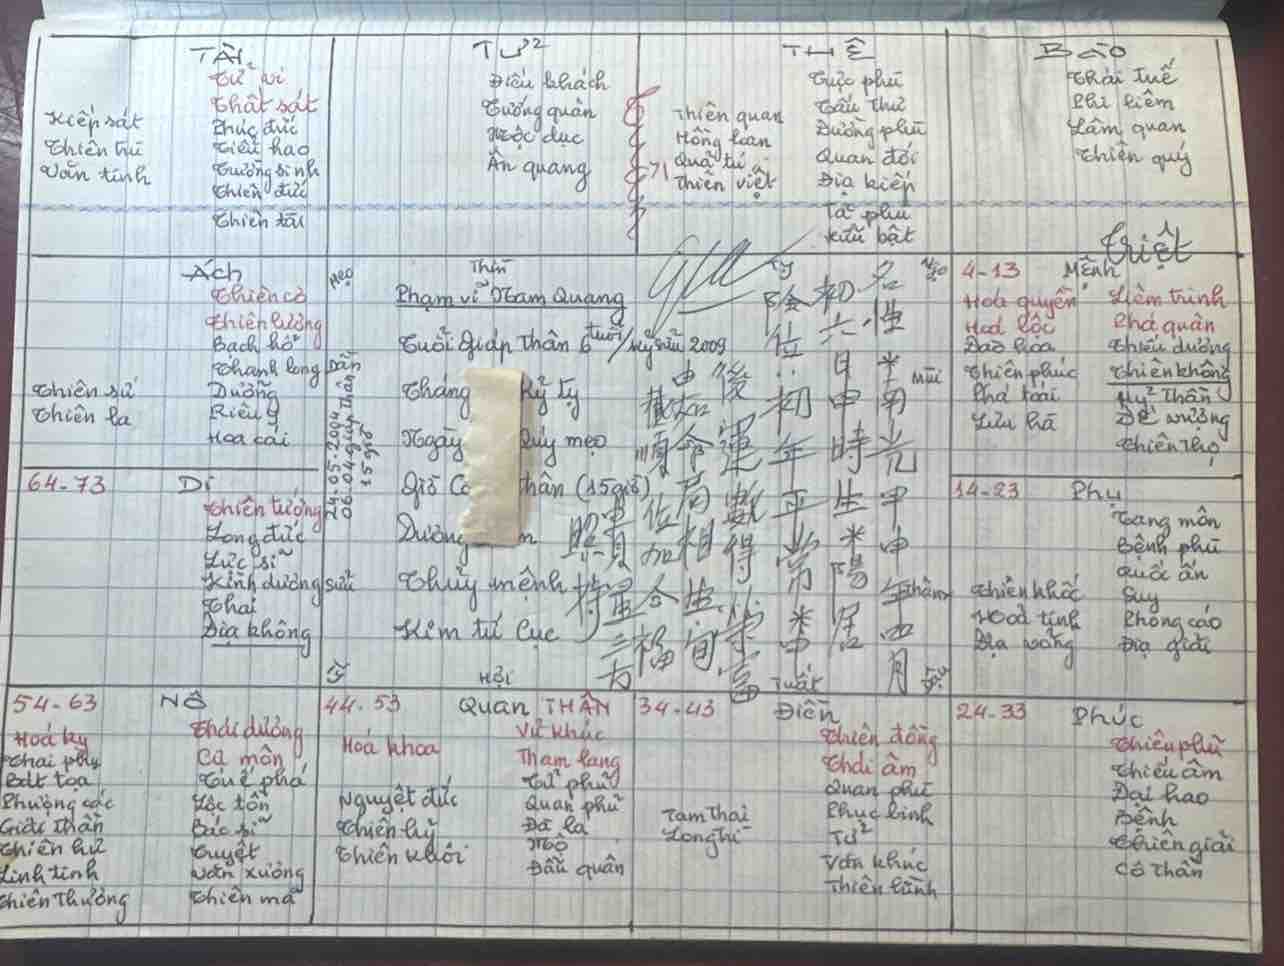 TÀI
Tử vi
Thất sát
Phúc đức
Tiểu hao
Trường sinh
Thiên đức
Thiên tài
Kiếp sát
Thiên trù
Văn tinh
TỬ²
Điếu khách
Tướng quân
Mộc dục
Ân quang
THÊ
Trực phù
Tấu thư
Dương phù
Quan đới
Địa kiếp
Tả phù
Hữu bật
Thiên quan
Hồng loan
Quả tú
Thiên việt
71
BÀO
Thái Tuế
Phi liêm
Lâm quan
Thiên quý
Triệt
Ách
Thiên cơ
Thiên lương
Bạch hổ
Thanh long
Dưỡng
Riêu y
Hoa cái
Thiên sứ
Thiên la
Thìn
Tỵ
Ngọ
Mẹo
Phạm vĩ Nam Quang
Tuổi Giáp Thân 6 tuổi / Kỷ sửu 2009
Tháng Kỷ Tỵ
Ngày Quý mẹo
Giờ thân (15giờ)
Dương
Thủy mệnh
Kim tứ Cục
Dần
24.05.2004
06.04 giáp thân
15 giờ
Mùi
Thân
sửu
Tý
Hợi
Tuất
Dậu
名性米南光甲申年四月
初六日申時生米陽居米申
4-13 Mệnh
Hoá quyền
Hoá lộc
Đào hoa
Thiên phúc
Phá toái
Lưu hà
Liêm trinh
Phá quân
Thiếu dương
Thiên không
Mỹ² Thần
Đế vượng
Thiên Thọ
64-73 Di
Thiên tướng
Long đức
Lực sĩ
Kình dương
Thai
Địa không
14-23 Phụ
Tang môn
Bệnh phù
Quốc ấn
Suy
Phong cáo
Địa giải
Thiên khốc
Hoả tinh
Địa võng
54-63 NÔ
Hoá kỵ
Thai phụ
Bát tọa
Phượng các
Giải thần
Thiên hư
Linh tinh
Thiên Thương
Thái dương
Cự môn
Tuế phá
Lộc tồn
Bác sĩ
Tuyệt
Văn xương
Thiên mã
44-53 Quan THÂN
Hoá khoa
Nguyệt đức
Thiên hỷ
Thiên khôi
Vũ khúc
Tham lang
Tử phù
Quan phủ
Đà la
Mộ
Đẩu quân
34-43 Điền
Tam Thai
Long trì
Thiên đồng
Thái âm
Quan phù
Phục binh
Tử²
Văn khúc
Thiên hình
24-33 Phúc
Thiên phủ
Thiếu âm
Đại hao
Bệnh
Thiên giải
Cô Thần